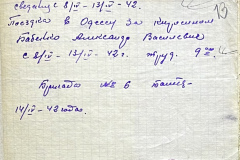 сведение 8/IV - 13/IV - 42.
Поездка в Одессу за кирпичом
Бабенко Александр Васильевич
с 8/IV - 13/IV - 42 г. труд. 9
Бригада № 6
14/IV - 42 года.
13